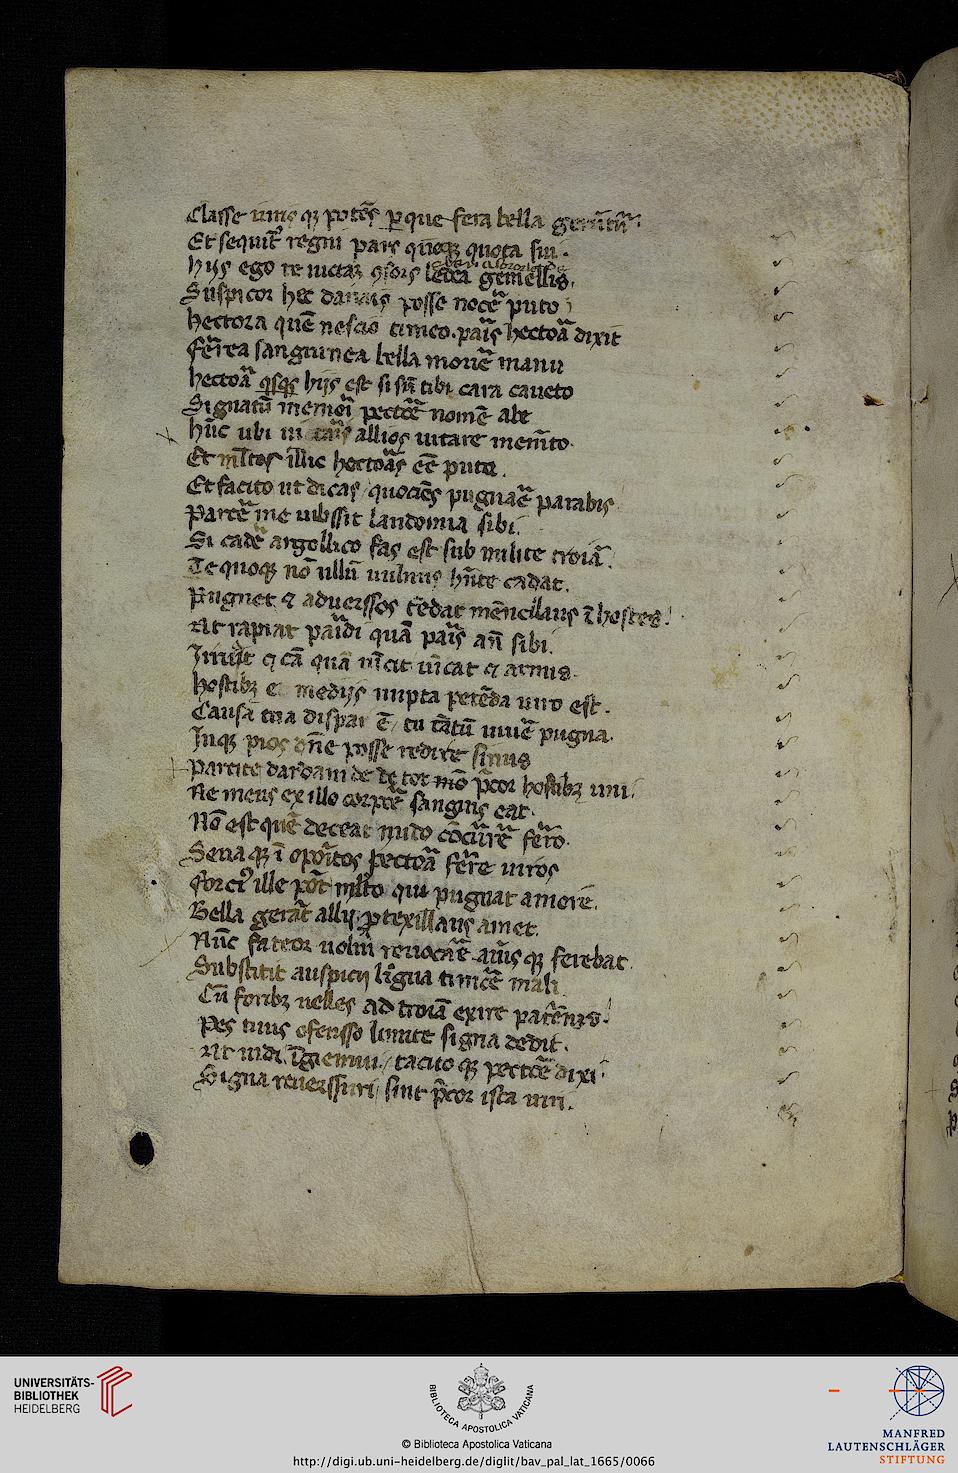 Classe uirisq; potēs per que fera bella gerūtur
Et sequit᷑ regni pars queq; quota sui.
Hijs ego te uictaȝ ꝯsors ledea gemellis.
Suspicor hec danais posse nocē puto
Hectora quē nescio timeo. paris hectoā dixit
Ferrea sanguinea bella mouē manu
Hectoā qisqis hijs est si sū tibi cara caueto
Signatū memori pectoē nomē abe
Hūc ubi uitaris allios uitare memēto
Et mltos illic hectoās eē puta.
Et facito ut dicas quociēs pugnaē parabis
Parcē me iubssit laudomia sibi.
Si cadē argollico fas est sub milite troiā
Te quoq; nō ullū uulnus hñte cadat.
Pugnet et aduerssos tēdat mēncilaus ī hostes
Ut rapiat paridi quā paris añ sibi.
Irruat et cā quā uīcit uīcat et armis.
Hostibȝ e medijs nupta petēda uiro est.
Causa tua dispar ē tu tātū uiuē pugna.
Inq; pios dn̄e posse redire sinus
Parcite dardani de de tot mō p̄cor hostibȝ uni
Ne meus ex illo corpoē sanguis eat.
Nō est quē deceat nudo cōcurrē ferro
Seuaq; ī opoītos pectoā ferre uiros
Forci᷑ ille pōt mlto qui pugnat amore.
Bella gerāt allij protexillaus amet.
Nūc fateor uolui reuocaē aīusq; ferebat
Substitit auspicij līgua timoē mali
Cū foribȝ uelles ad troiā exire paternis
Pes tuus ofensso limite signa dedit.
Ut uidi īgemui tacitoq; pectoē dixi
Signa reuerssuri sint p̄cor ista uiri.
UNIVERSITÄTS-
BIBLIOTHEK
HEIDELBERG
BIBLIOTECA APOSTOLICA VATICANA
© Biblioteca Apostolica Vaticana
http://digi.ub.uni-heidelberg.de/diglit/bav_pal_lat_1665/0066
MANFRED
LAUTENSCHLÄGER
STIFTUNG